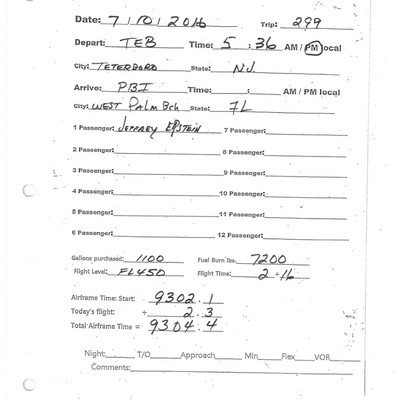 Date: 7/10/2016 Trip: 299
Depart: TEB Time: 5:36 AM / PM local
City: TETERBORO State: NJ.
Arrive: PBI Time: : AM / PM local
City: WEST PALM Bch State: FL
1 Passenger: JEFFREY EPSTEIN 7 Passenger:
2 Passenger: 8 Passenger:
3 Passenger: 9 Passenger:
4 Passenger: 10 Passenger:
5 Passenger: 11 Passenger:
6 Passenger: 12 Passenger:
Gallons purchased: 1100 Fuel Burn lbs. 7200
Flight Level: FL450 Flight Time: 2+16
Airframe Time: Start: 9302.1
Today's flight: + 2.3
Total Airframe Time = 9304.4
Night: T/O Approach Min Flex VOR
Comments: